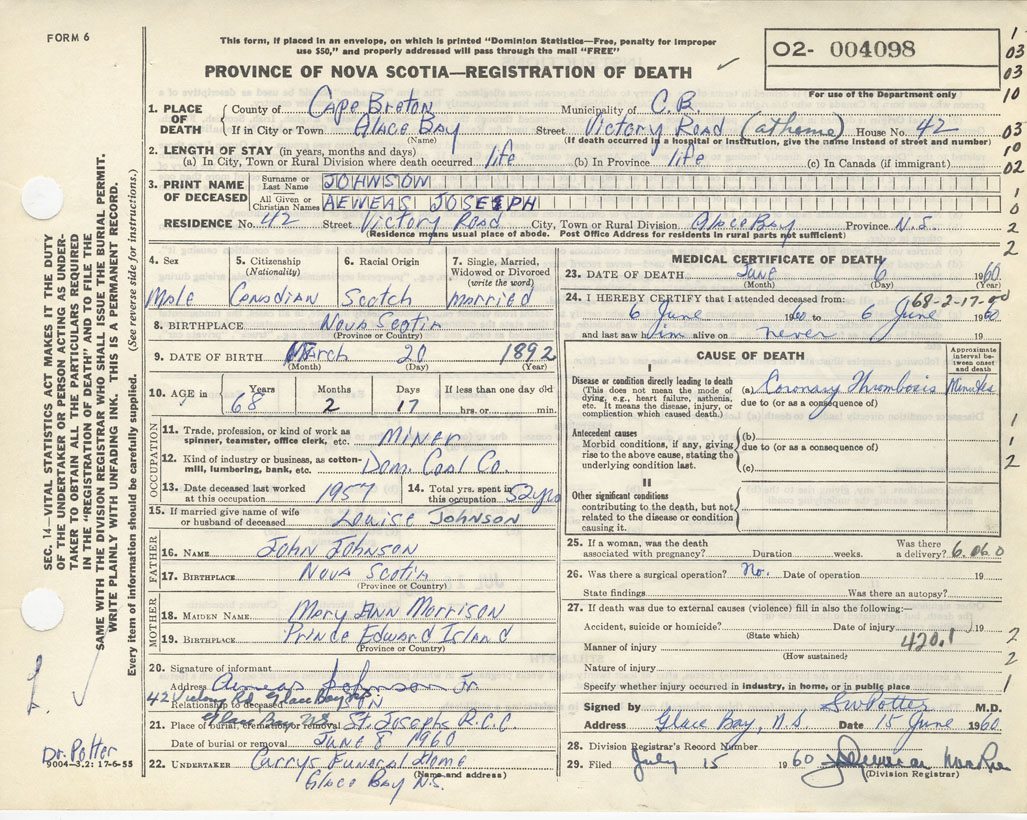 FORM 6
This form, if placed in an envelope, on which is printed "Dominion Statistics—Free, penalty for improper
use $50," and properly addressed will pass through the mail "FREE"
PROVINCE OF NOVA SCOTIA—REGISTRATION OF DEATH
02- 004098
For use of the Department only
1. PLACE OF DEATH
County of Cape Breton Municipality of C.B.
If in City or Town Glace Bay Street Victory Road (at home) House No. 42
(Name) (If death occurred in a hospital or institution, give the name instead of street and number)
2. LENGTH OF STAY (in years, months and days)
(a) In City, Town or Rural Division where death occurred life (b) In Province life (c) In Canada (if immigrant)
3. PRINT NAME OF DECEASED
Surname or Last Name JOHNSON
All Given or Christian Names AENEAS JOSEPH
RESIDENCE No. 42 Street Victory Road City, Town or Rural Division Glace Bay Province N.S.
(Residence means usual place of abode. Post Office Address for residents in rural parts not sufficient)
4. Sex Male
5. Citizenship (Nationality) Canadian
6. Racial Origin Scotch
7. Single, Married, Widowed or Divorced (write the word) Married
8. BIRTHPLACE Nova Scotia
(Province or Country)
9. DATE OF BIRTH March 20 1892
(Month) (Day) (Year)
10. AGE in Years 68 Months 2 Days 17 If less than one day old hrs. or min.
OCCUPATION
11. Trade, profession, or kind of work as spinner, teamster, office clerk, etc. Miner
12. Kind of industry or business, as cotton-mill, lumbering, bank, etc. Dom. Coal Co.
13. Date deceased last worked at this occupation 1957
14. Total yrs. spent in this occupation 52 yrs
15. If married give name of wife or husband of deceased Louise Johnson
FATHER
16. NAME John Johnson
17. BIRTHPLACE Nova Scotia
(Province or Country)
MOTHER
18. MAIDEN NAME Mary Ann Morrison
19. BIRTHPLACE Prince Edward Island
(Province or Country)
20. Signature of informant Aeneas Johnson Jr.
Address 42 Victory Rd Glace Bay N.S.
Relationship to deceased Son
Glace Bay N.S.
21. Place of burial, cremation or removal St. Josephs R.C.C.
Date of burial or removal June 8 1960
22. UNDERTAKER Currys Funeral Home
(Name and address)
Glace Bay N.S.
MEDICAL CERTIFICATE OF DEATH
23. DATE OF DEATH June 6 1960
(Month) (Day) (Year)
68-2-17
24. I HEREBY CERTIFY that I attended deceased from:
6 June 1960 to 6 June 1960
and last saw him alive on never 19
CAUSE OF DEATH
Approximate interval between onset and death
I
Disease or condition directly leading to death
(This does not mean the mode of dying, e.g., heart failure, asthenia, etc. It means the disease, injury, or complication which caused death.)
(a) Coronary Thrombosis Minutes
due to (or as a consequence of)
Antecedent causes
Morbid conditions, if any, giving rise to the above cause, stating the underlying condition last.
(b)
due to (or as a consequence of)
(c)
II
Other significant conditions
contributing to the death, but not related to the disease or condition causing it.
25. If a woman, was the death associated with pregnancy? Duration weeks. Was there a delivery? 6.06.0
26. Was there a surgical operation? No. Date of operation 19
State findings Was there an autopsy?
27. If death was due to external causes (violence) fill in also the following:
Accident, suicide or homicide? Date of injury 19
(State which) 420.1
Manner of injury
(How sustained)
Nature of injury
Specify whether injury occurred in industry, in home, or in public place
Signed by SW Potter M.D.
Address Glace Bay, N.S Date 15 June 1960
28. Division Registrar's Record Number
29. Filed July 15 1960
(Division Registrar)
SEC. 14—VITAL STATISTICS ACT MAKES IT THE DUTY
OF THE UNDERTAKER OR PERSON ACTING AS UNDER-
TAKER TO OBTAIN ALL THE PARTICULARS REQUIRED
IN THE "REGISTRATION OF DEATH" AND TO FILE THE
SAME WITH THE DIVISION REGISTRAR WHO SHALL ISSUE THE BURIAL PERMIT.
WRITE PLAINLY WITH UNFADING INK. THIS IS A PERMANENT RECORD.
Every item of information should be carefully supplied. (See reverse side for instructions.)
Dr. Potter
9004—3.2: 17-6-55
1
03
03
10
03
10
02
1
0
2
2
1
1
2
2
2
1